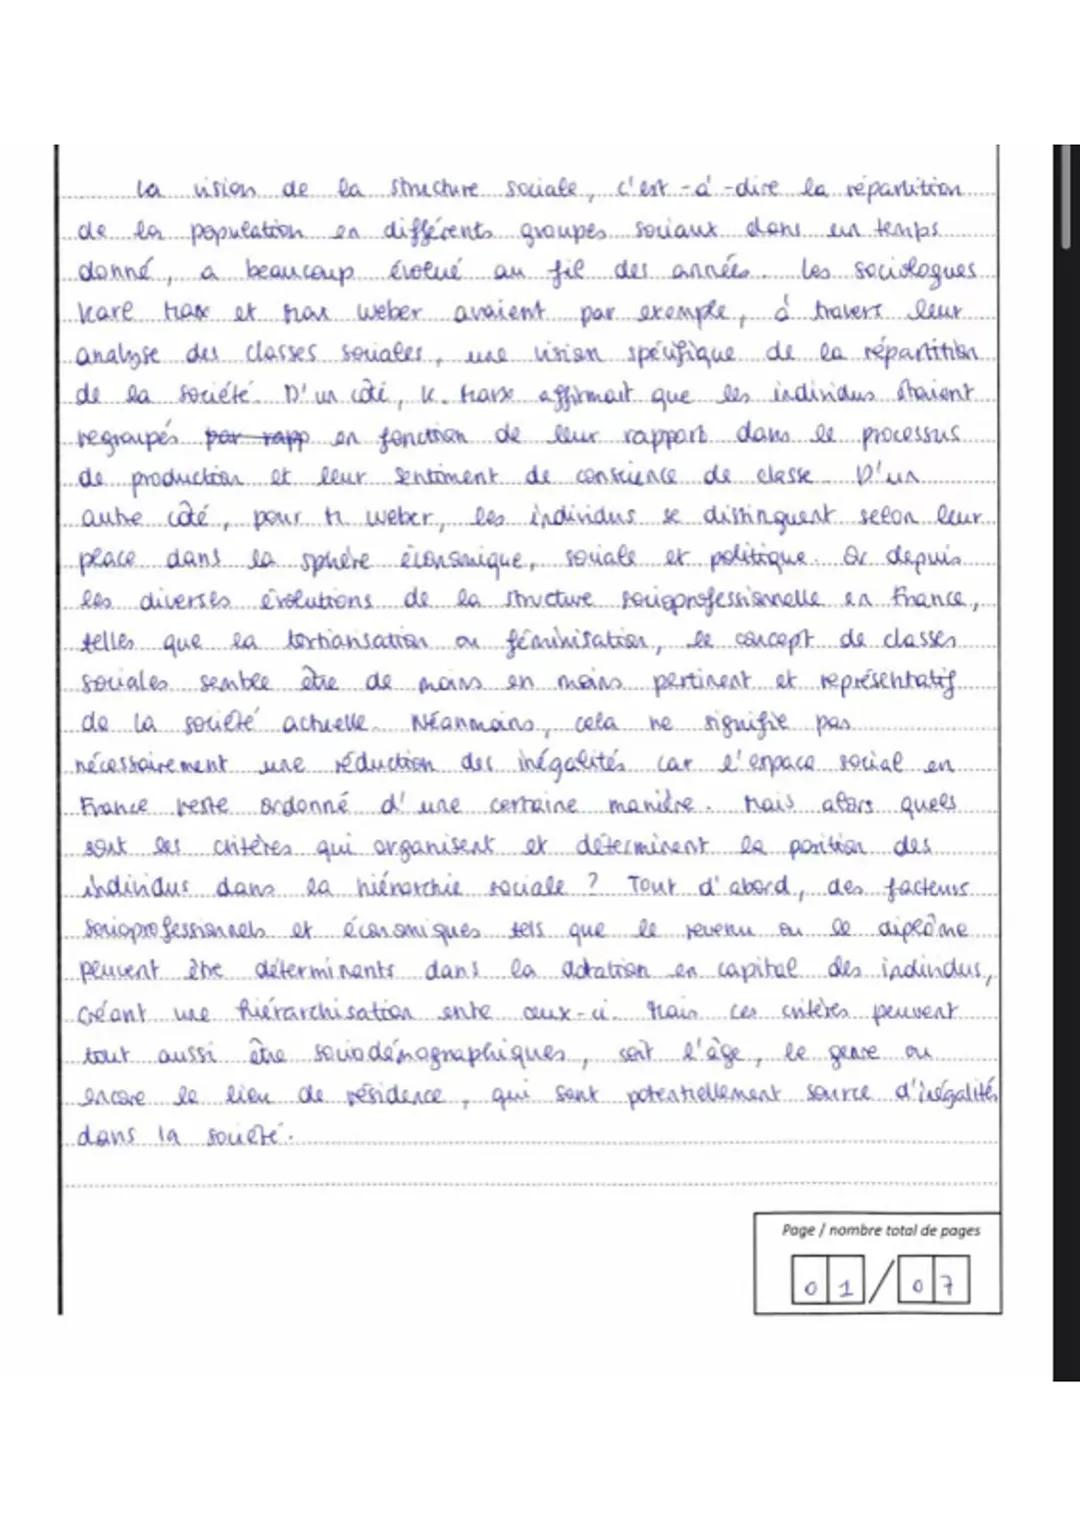 La vision de la structure sociale, c'est-à-dire la répartition
de la population en différents groupes sociaux dans un temps
donné, a beaucoup évolué au fil des années. Les sociologues
Karl Marx et Max Weber avaient par exemple, à travers leur
analyse des classes sociales, une vision spécifique de la répartition
de la société. D'un côté, K. Marx affirmait que les individus étaient
regroupés par rapp en fonction de leur rapport dans le processus
de production et leur sentiment de conscience de classe. D'un
autre côté, pour M. Weber, les individus se distinguent selon leur
place dans la sphère économique, sociale et politique. Or depuis
les diverses évolutions de la structure socioprofessionnelle en France,
telles que la tertiarisation ou féminisation, le concept de classes
sociales semble être de moins en moins pertinent et représentatif
de la société actuelle. Néanmoins, cela ne signifie pas
nécessairement une réduction des inégalités car l'espace social en
France reste ordonné d'une certaine manière. Mais alors quels
sont les critères qui organisent et déterminent la position des
individus dans la hiérarchie sociale ? Tout d'abord, des facteurs
socioprofessionnels et économiques tels que le revenu ou le diplôme
peuvent être déterminants dans la dotation en capital des individus,
créant une hiérarchisation entre ceux-ci. Mais ces critères peuvent
tout aussi être sociodémographiques, soit l'âge, le genre ou
encore le lieu de résidence, qui sont potentiellement source d'inégalités
dans la société.
Page / nombre total de pages
01/07